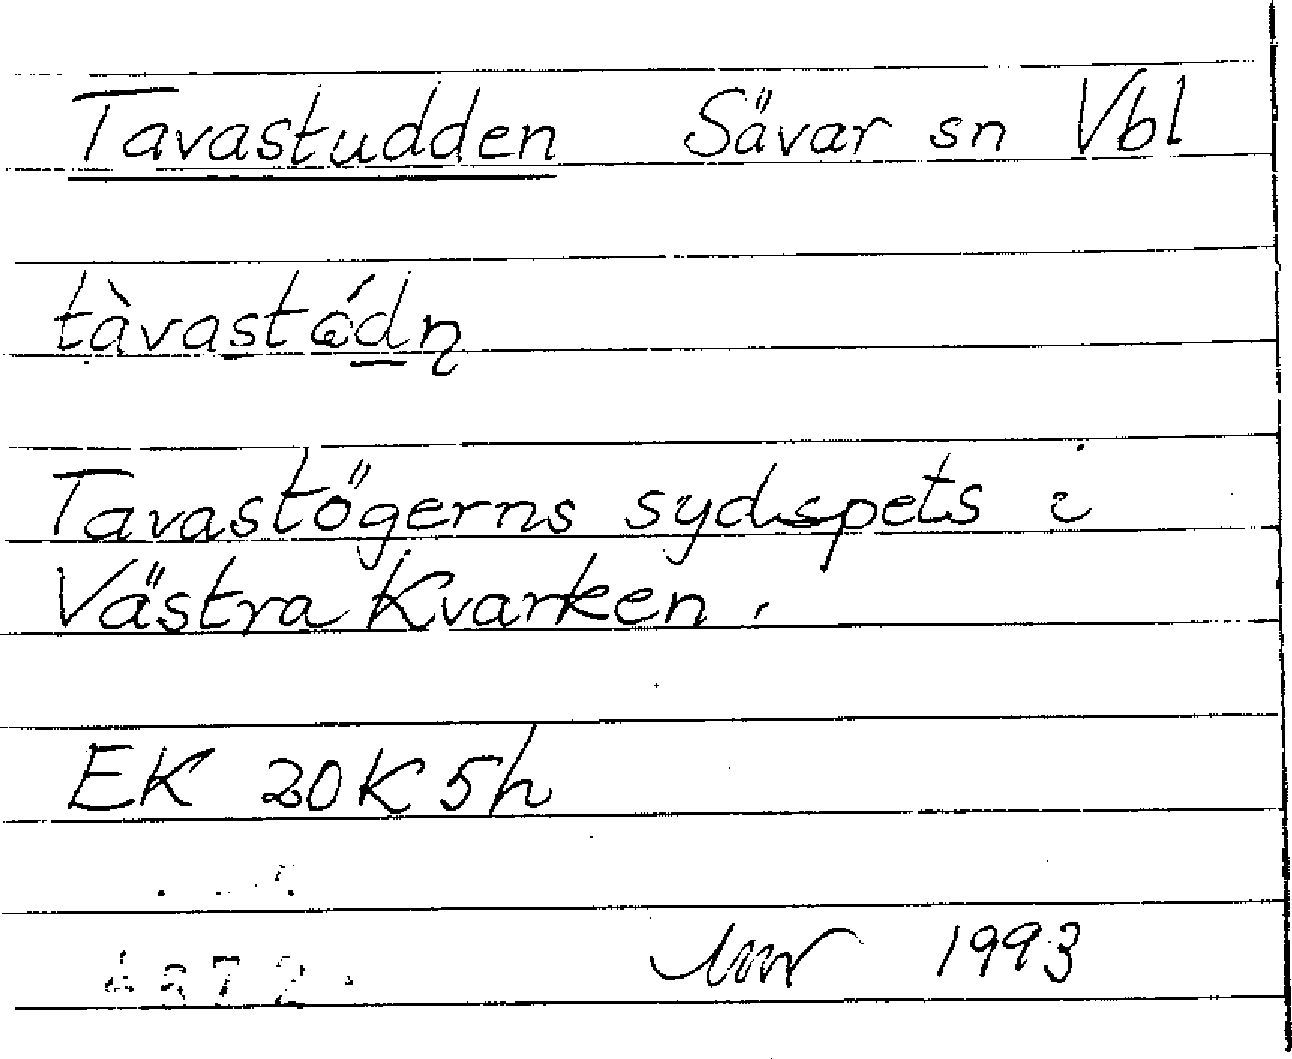 Tavastudden Sävar sn Vbl
tàvastǿdn̥
Tavastögerns sydspets i
Västra Kvarken.
EK 20K5h
1993